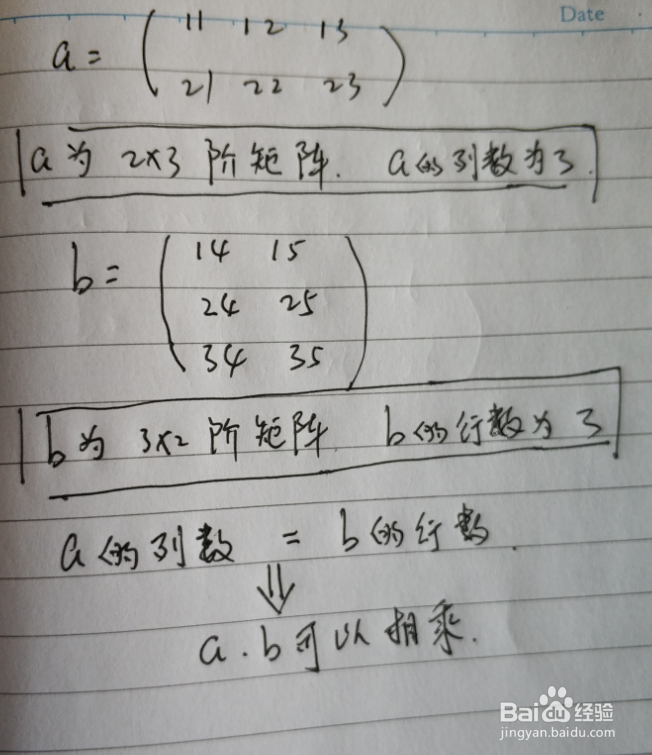 Date
a = ( 11 12 13
21 22 23 )
a为 2×3 阶矩阵. a的列数为3.
b = ( 14 15
24 25
34 35 )
b为 3×2 阶矩阵 b的行数为3
a的列数 = b的行数.
⇓
a.b可以相乘.
Baidu经验
jingyan.baidu.com